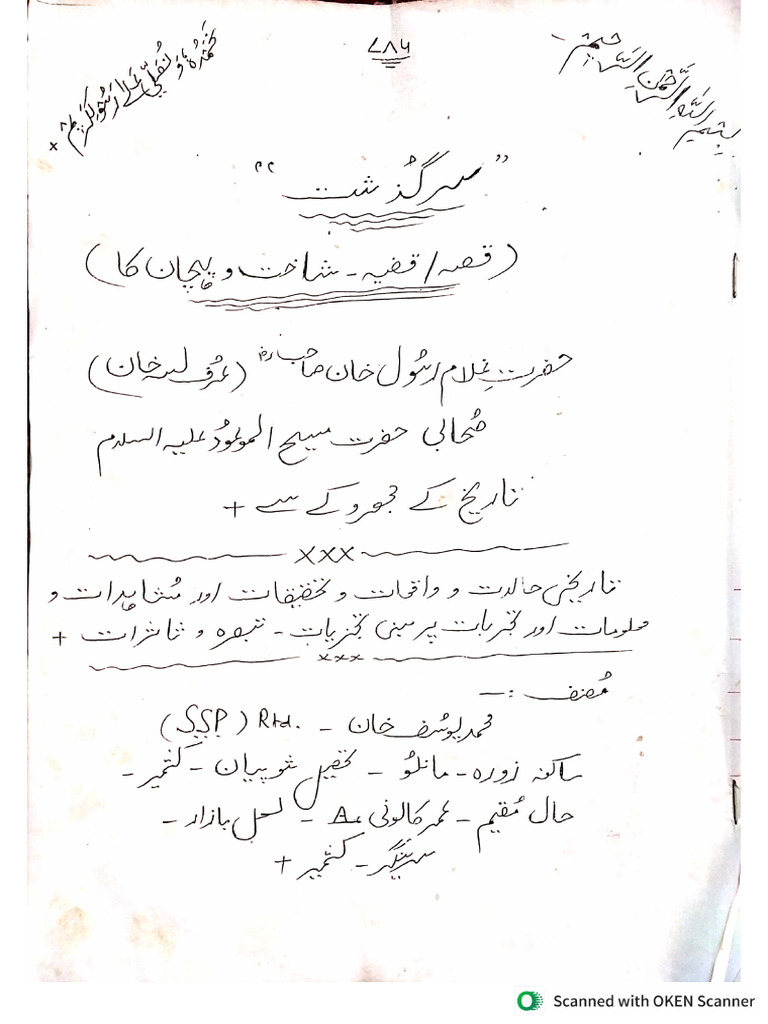 بِسْمِ اللہِ الرَّحْمٰنِ الرَّحِیْمِ
۷۸۶
نَحْمَدُہٗ وَ نُصَلِّی عَلٰے رَسُوْلِہِ الْکَرِیْم +
"سرگُذشت"
(قصہ / قضیہ - شاخت و پہچان کا)
حضرتِ غلام رسُول خان صاحبؓ (عرُف لسہ خان)
صُحابی حضرت مسیح الموعُود علیہ السلام
تاریخ کے جھروکے سے +
xxx
تاریخی حالات و واقعات و تحقیقات اور مُشاہدات و
معلومات اور تجربات پر مبنی تجزیات - تبصرہ و تاثرات +
xxx
مُصنف :-
محمد یوسُف خان - Rtd. (SSP)
ساکنہ زورہ - مانلُو - تحصیل شوپیان - کشمیر -
حال مُقیم - عمر کالونی A - لعل بازار -
سرینگر - کشمیر +
Scanned with OKEN Scanner